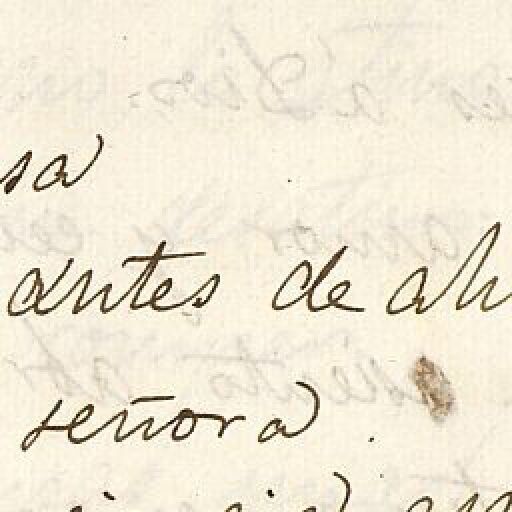 sa
antes de ah
señora.